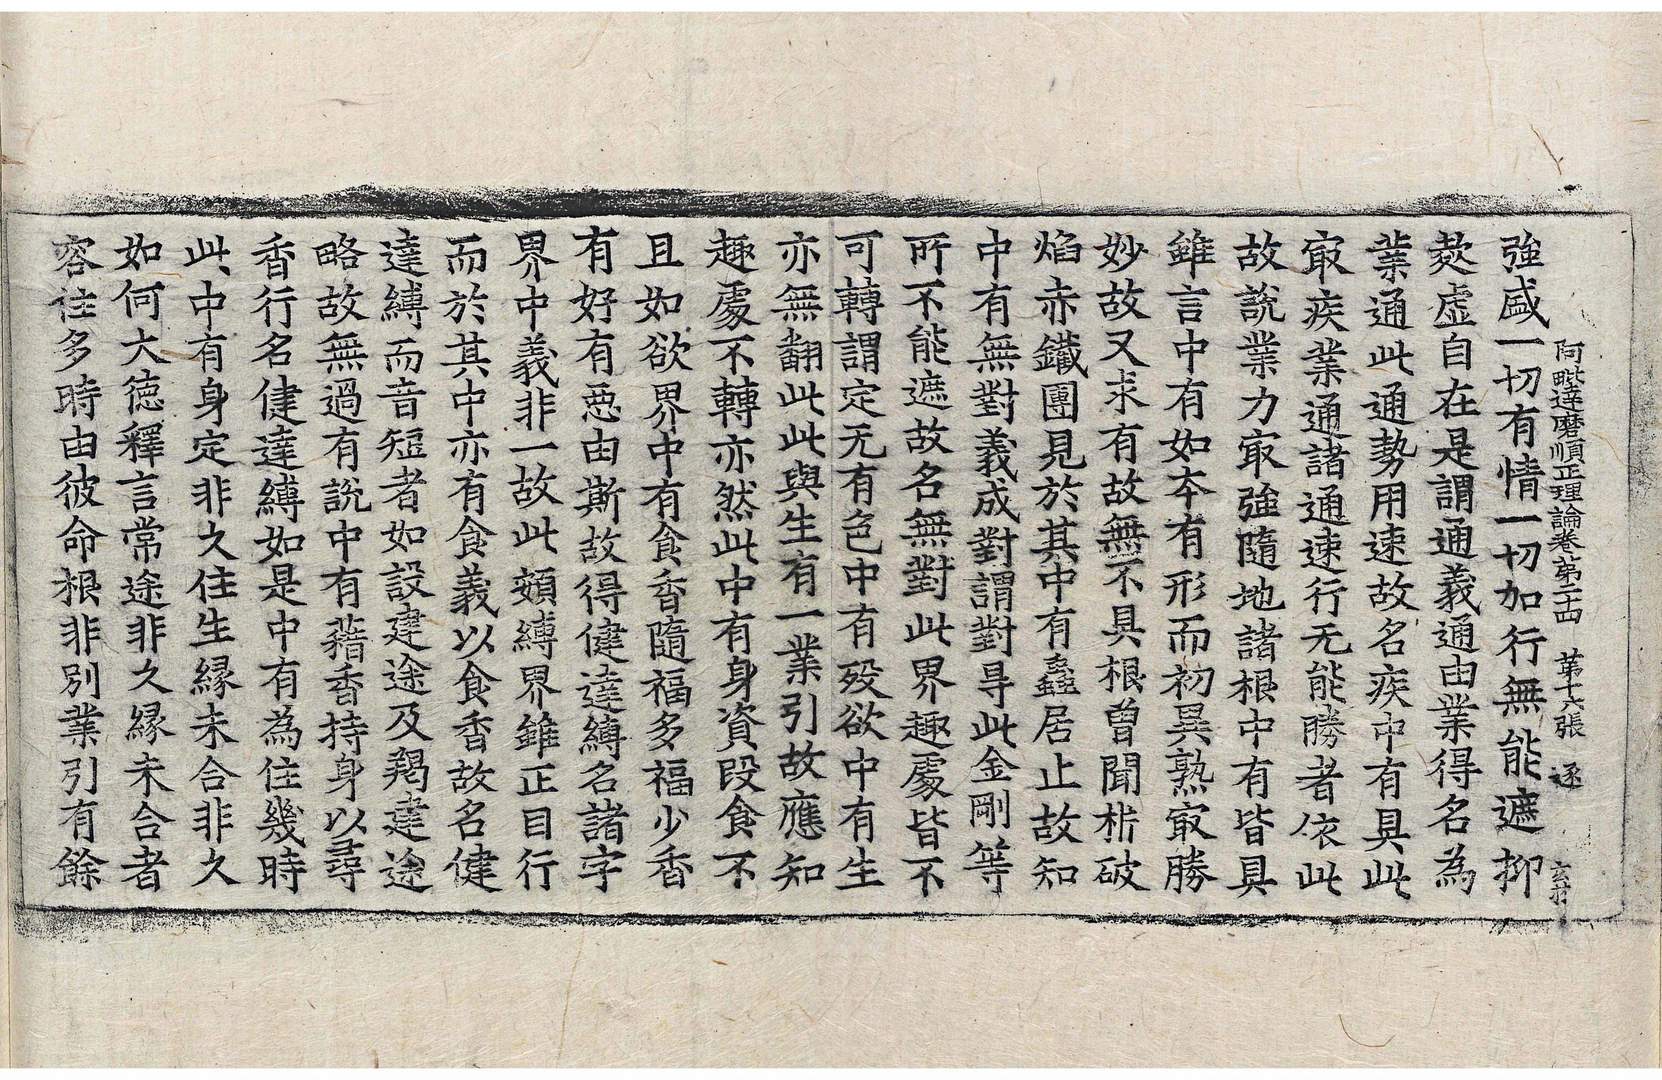 阿毗達磨順正理論卷第二十四　第十六張　逐　玄井
強盛一切有情一切加行無能遮抑
欻虛自在是謂通義通由業得名為
業通此通勢用速故名疾中有具此
㝡疾業通諸通速行无能勝者依此
故說業力㝡強隨地諸根中有皆具
雖言中有如夲有形而初異熟㝡勝
妙故又求有故無不具根曾聞㭊破
焰赤鐵團見於其中有蟲居止故知
中有無對義成對謂對㝵此金剛等
所不能遮故名無對此界趣處皆不
可轉謂定无有色中有歿欲中有生
亦無翻此此與生有一業引故應知
趣處不轉亦然此中有身資段食不
且如欲界中有食香隨福多福少香
有好有惡由斯故得健達縛名諸字
界中義非一故此頞縛界雖正目行
而於其中亦有食義以食香故名健
達縛而音短者如設建途及羯建途
略故無過有說中有藉香持身以尋
香行名健達縛如是中有為住幾時
此中有身定非久住生緣未合非久
如何大德釋言常途非久緣未合者
容住多時由彼命根非別業引有餘